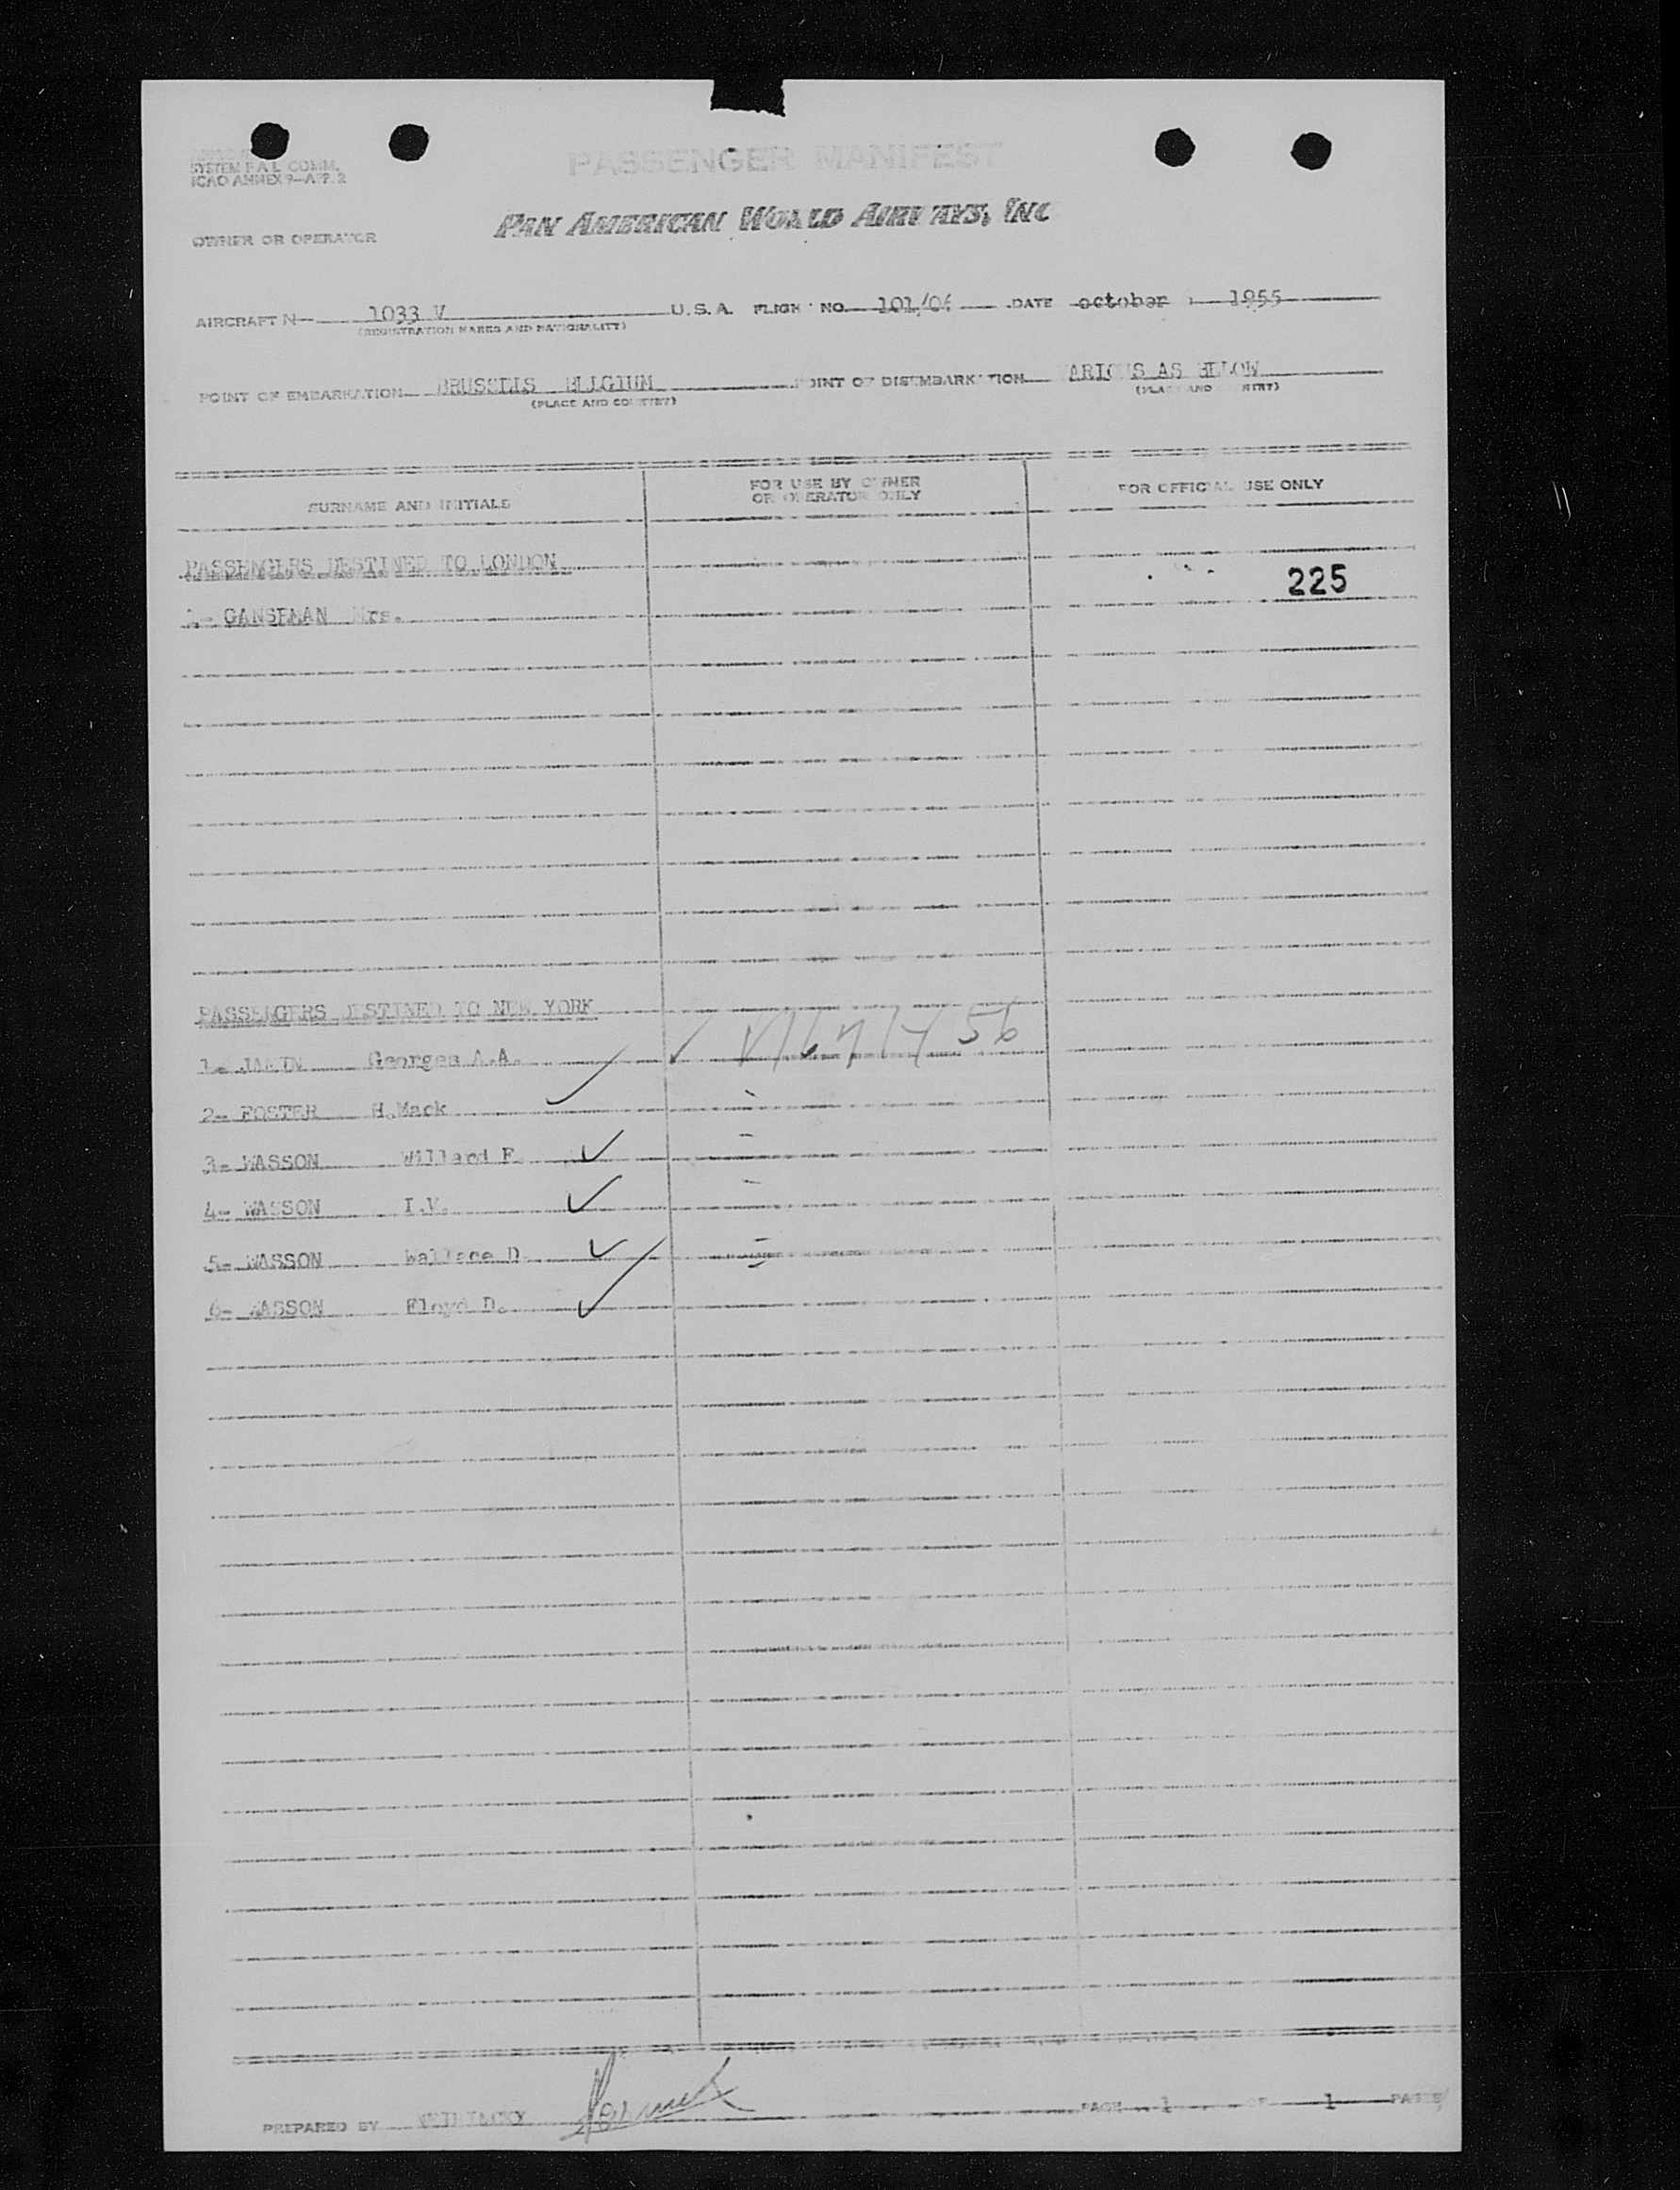 SYSTEM F.A.L. COMM.
ICAO ANNEX 9—APP. 2
PASSENGER MANIFEST
PAN AMERICAN WORLD AIRWAYS, INC
OWNER OR OPERATOR
AIRCRAFT N 1033 V U.S.A. FLIGHT NO. 101/06 DATE october 1955
(REGISTRATION MARKS AND NATIONALITY)
POINT OF EMBARKATION BRUSSELS BELGIUM POINT OF DISEMBARKATION ARIOUS AS BELOW
(PLACE AND COUNTRY) (PLACE AND COUNTRY)
SURNAME AND INITIALS FOR USE BY OWNER OR OPERATOR ONLY FOR OFFICIAL USE ONLY
PASSENGERS DESTINED TO LONDON
225
1- GANSEMAN Mrs.
PASSENGERS DESTINED TO NEW YORK
1- Georges A.A. 56
2- FOSTER H.Mack
3- WASSON Willard F.
4- WASSON I.V.
5- WASSON Wallace D
6- WASSON Floyd D.
PREPARED BY PAGE 1 OF 1 PAGES